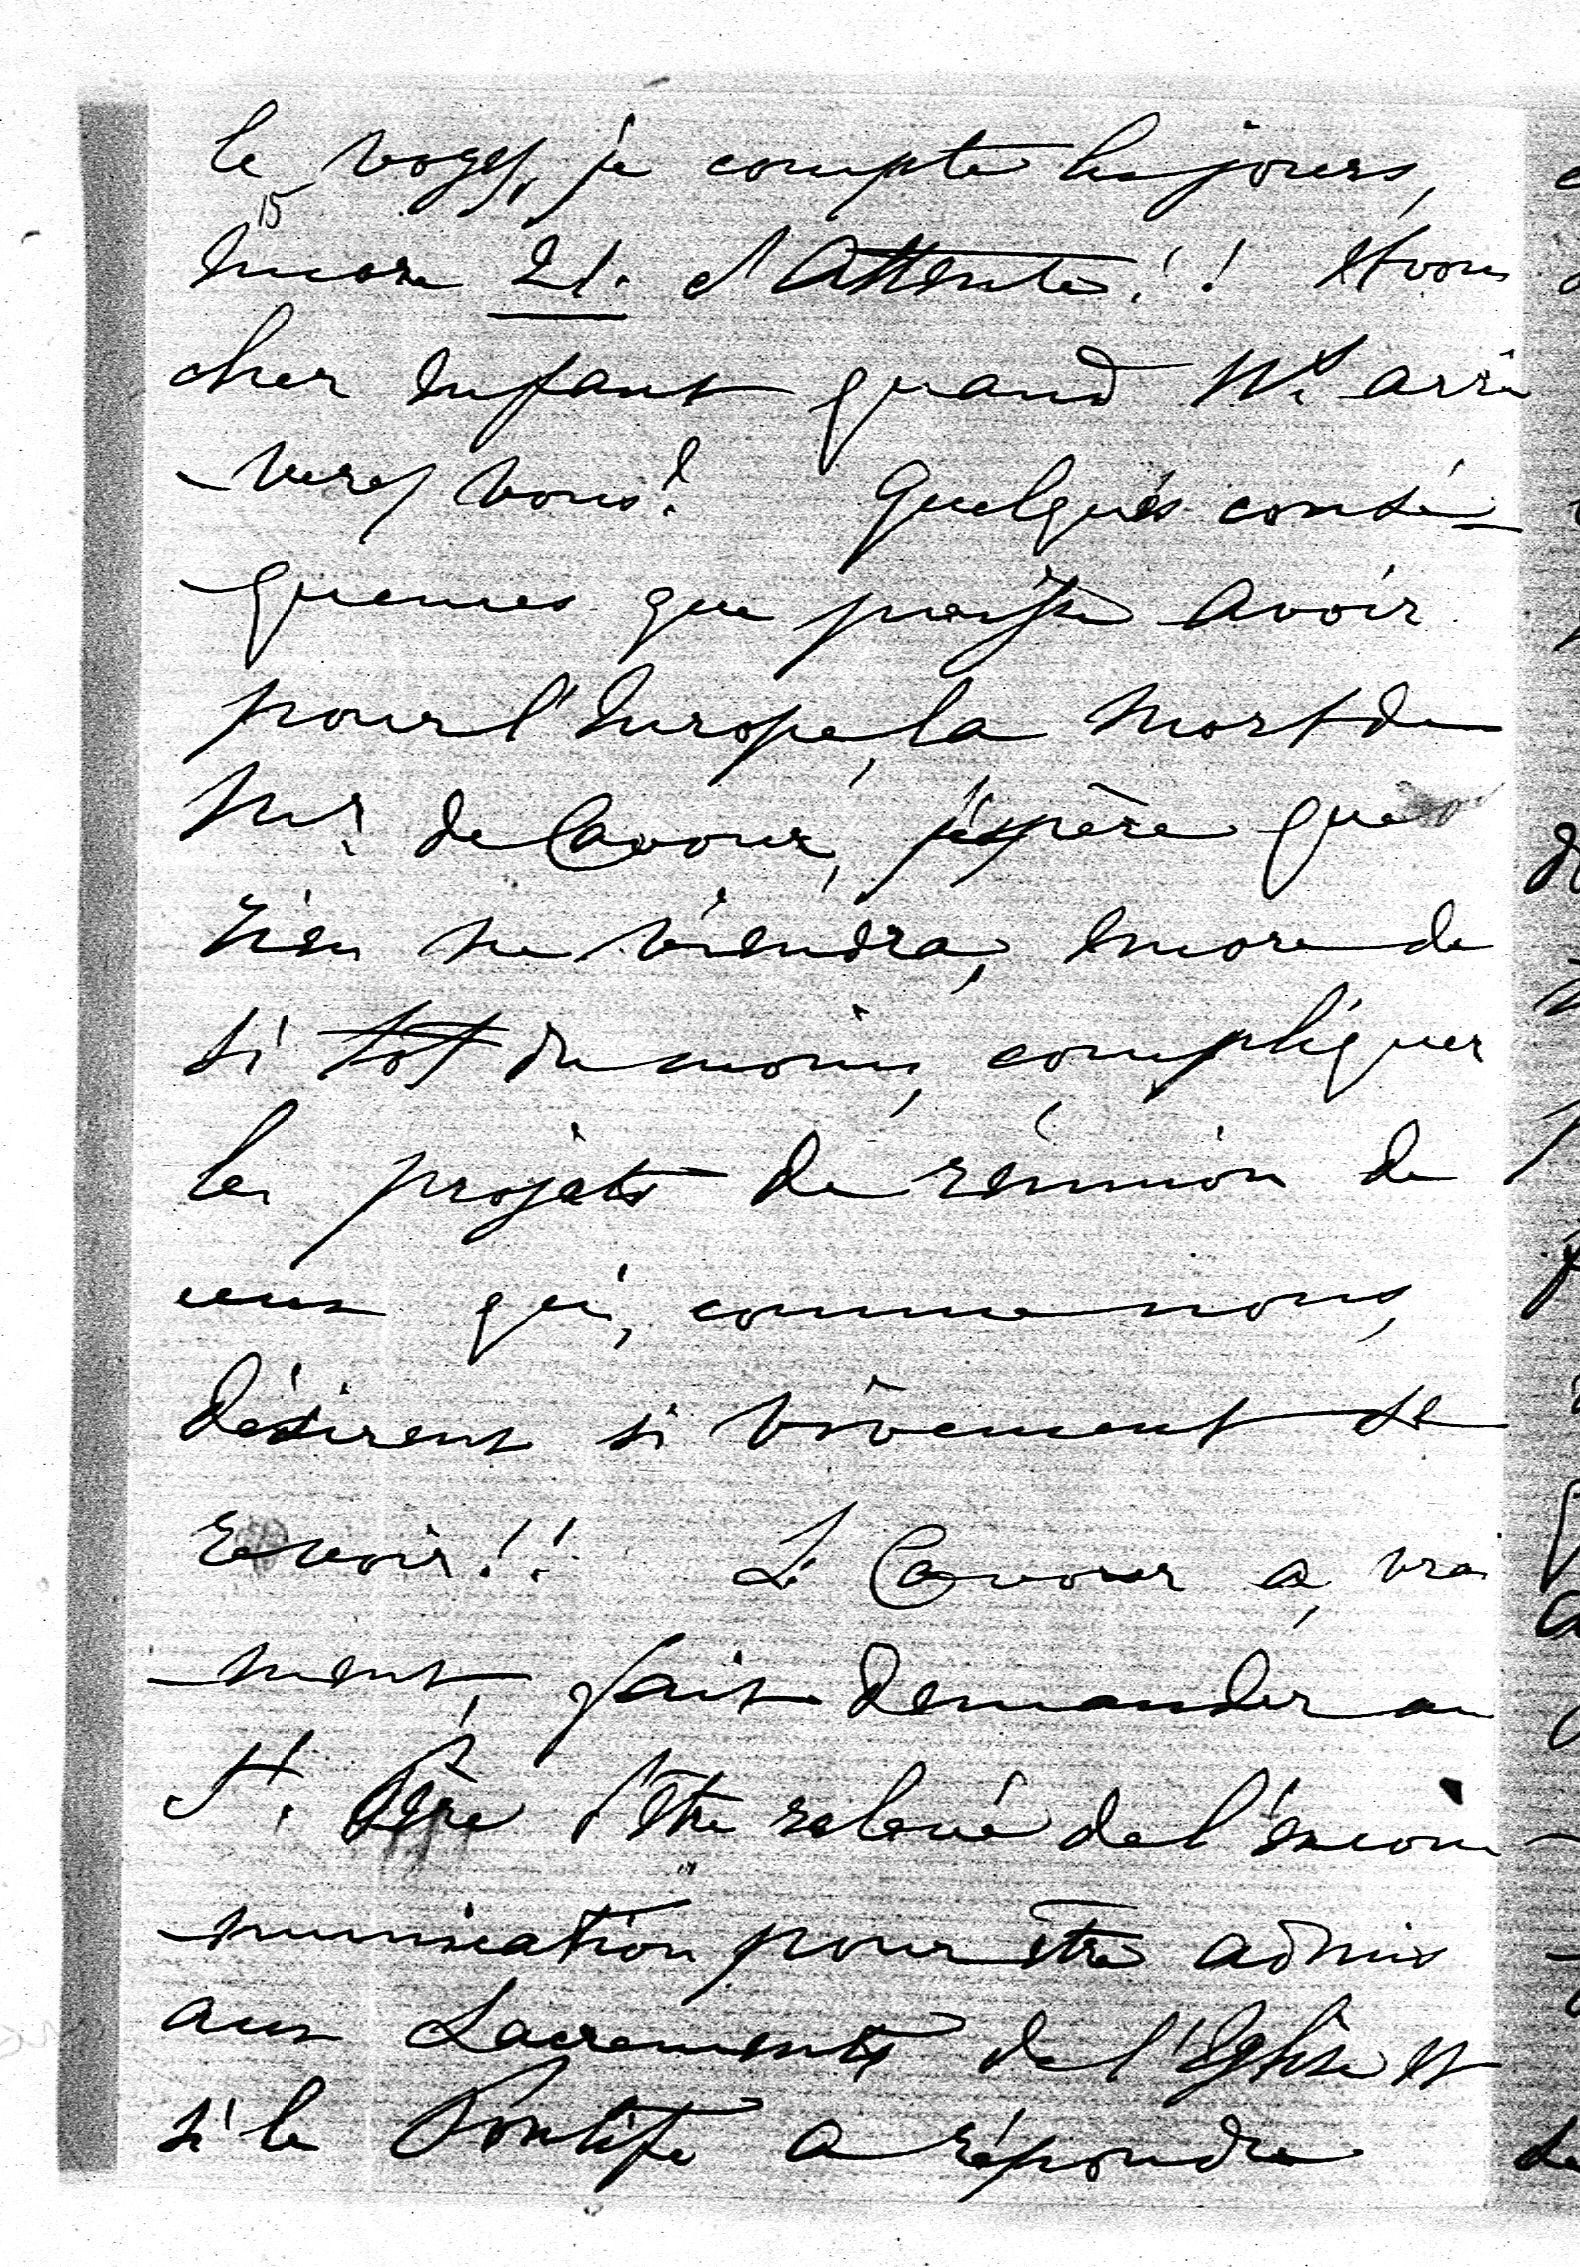 le voyez, je compte les jours,
15
Encore 21. d'Attente!! Et vous
cher Enfant quand N. arri
-verez vous? Quelques consé-
-quences que puisse avoir
pour l'Europe, la Mort de
Mr. de Cavour, j'éspère que
rien ne viendra, encore de
si tot du moins, compliquer
les projets de réunion de
ceux qui, comme nous,
désirent si vivement se
revoir!! Le Cavour a, vrai
-ment, fait demander au
St. Père d'être relevé de l'éxcom
-munication pour être admis
aux Sacrements de l'Eglise et
si le Pontife a répondre